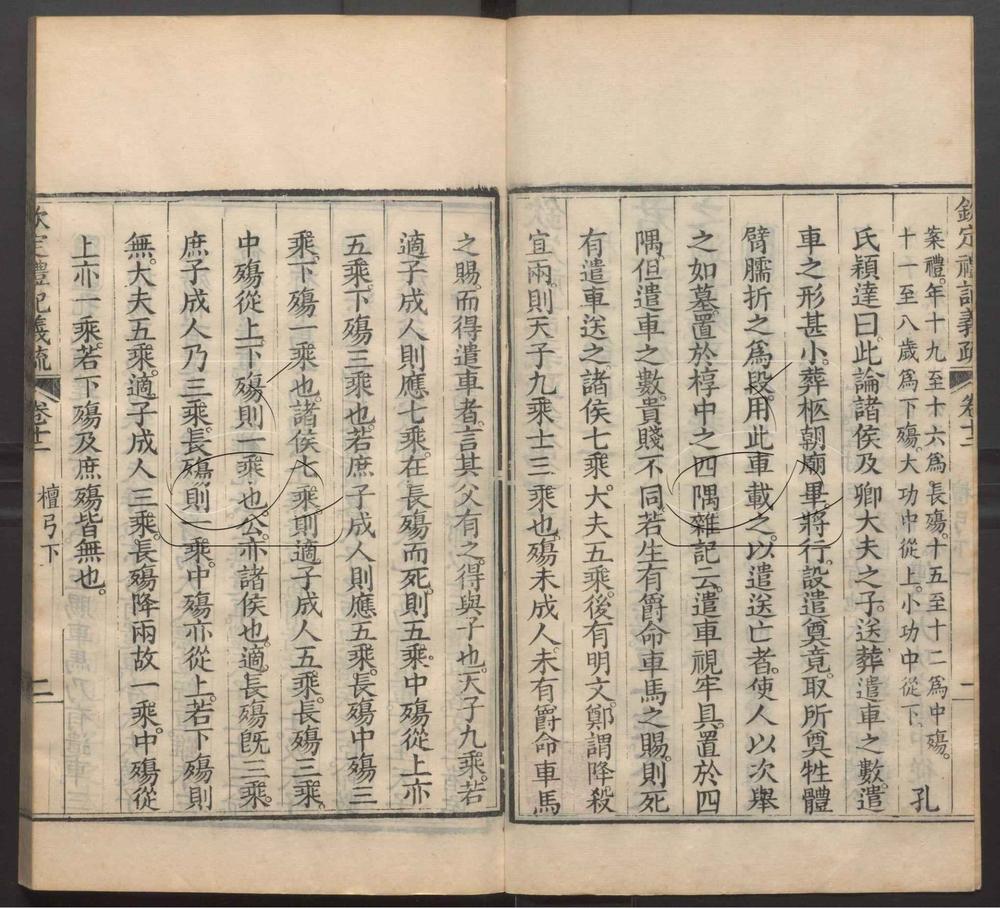 欽定禮記義疏 卷十二 一
案禮。年十九至十六爲長殤。十五至十二爲中殤。
十一至八歲爲下殤。大功中從上。小功中從下。
孔
氏穎達曰。此論諸侯及卿大夫之子送葬遣車之數。遣
車之形甚小。葬柩朝廟畢。將行。設遣奠竟。取所奠牲體
臂臑折之爲段。用此車載之。以遣送亡者。使人以次舉
之如墓。置於椁中之四隅。雜記云。遣車視牢具。置於四
隅。但遣車之數。貴賤不同。若生有爵命車馬之賜。則死
有遣車送之。諸侯七乘。大夫五乘。後有明文。鄭謂降殺
宜兩。則天子九乘。士三乘也。殤未成人。未有爵命車馬
之賜。而得遣車者。言其父有之。得與子也。天子九乘。若
適子成人則應七乘。在長殤而死。則五乘。中殤從上亦
五乘。下殤三乘也。若庶子成人則應五乘。長殤中殤三
乘。下殤一乘也。諸侯七乘。則適子成人五乘。長殤三乘。
中殤從上。下殤則一乘也。公亦諸侯也。適長殤旣三乘。
庶子成人乃三乘。長殤則一乘。中殤亦從上。若下殤則
無。大夫五乘。適子成人三乘。長殤降兩故一乘。中殤從
上亦一乘。若下殤及庶殤皆無也。
欽定禮記義疏 卷十二 檀弓下 二